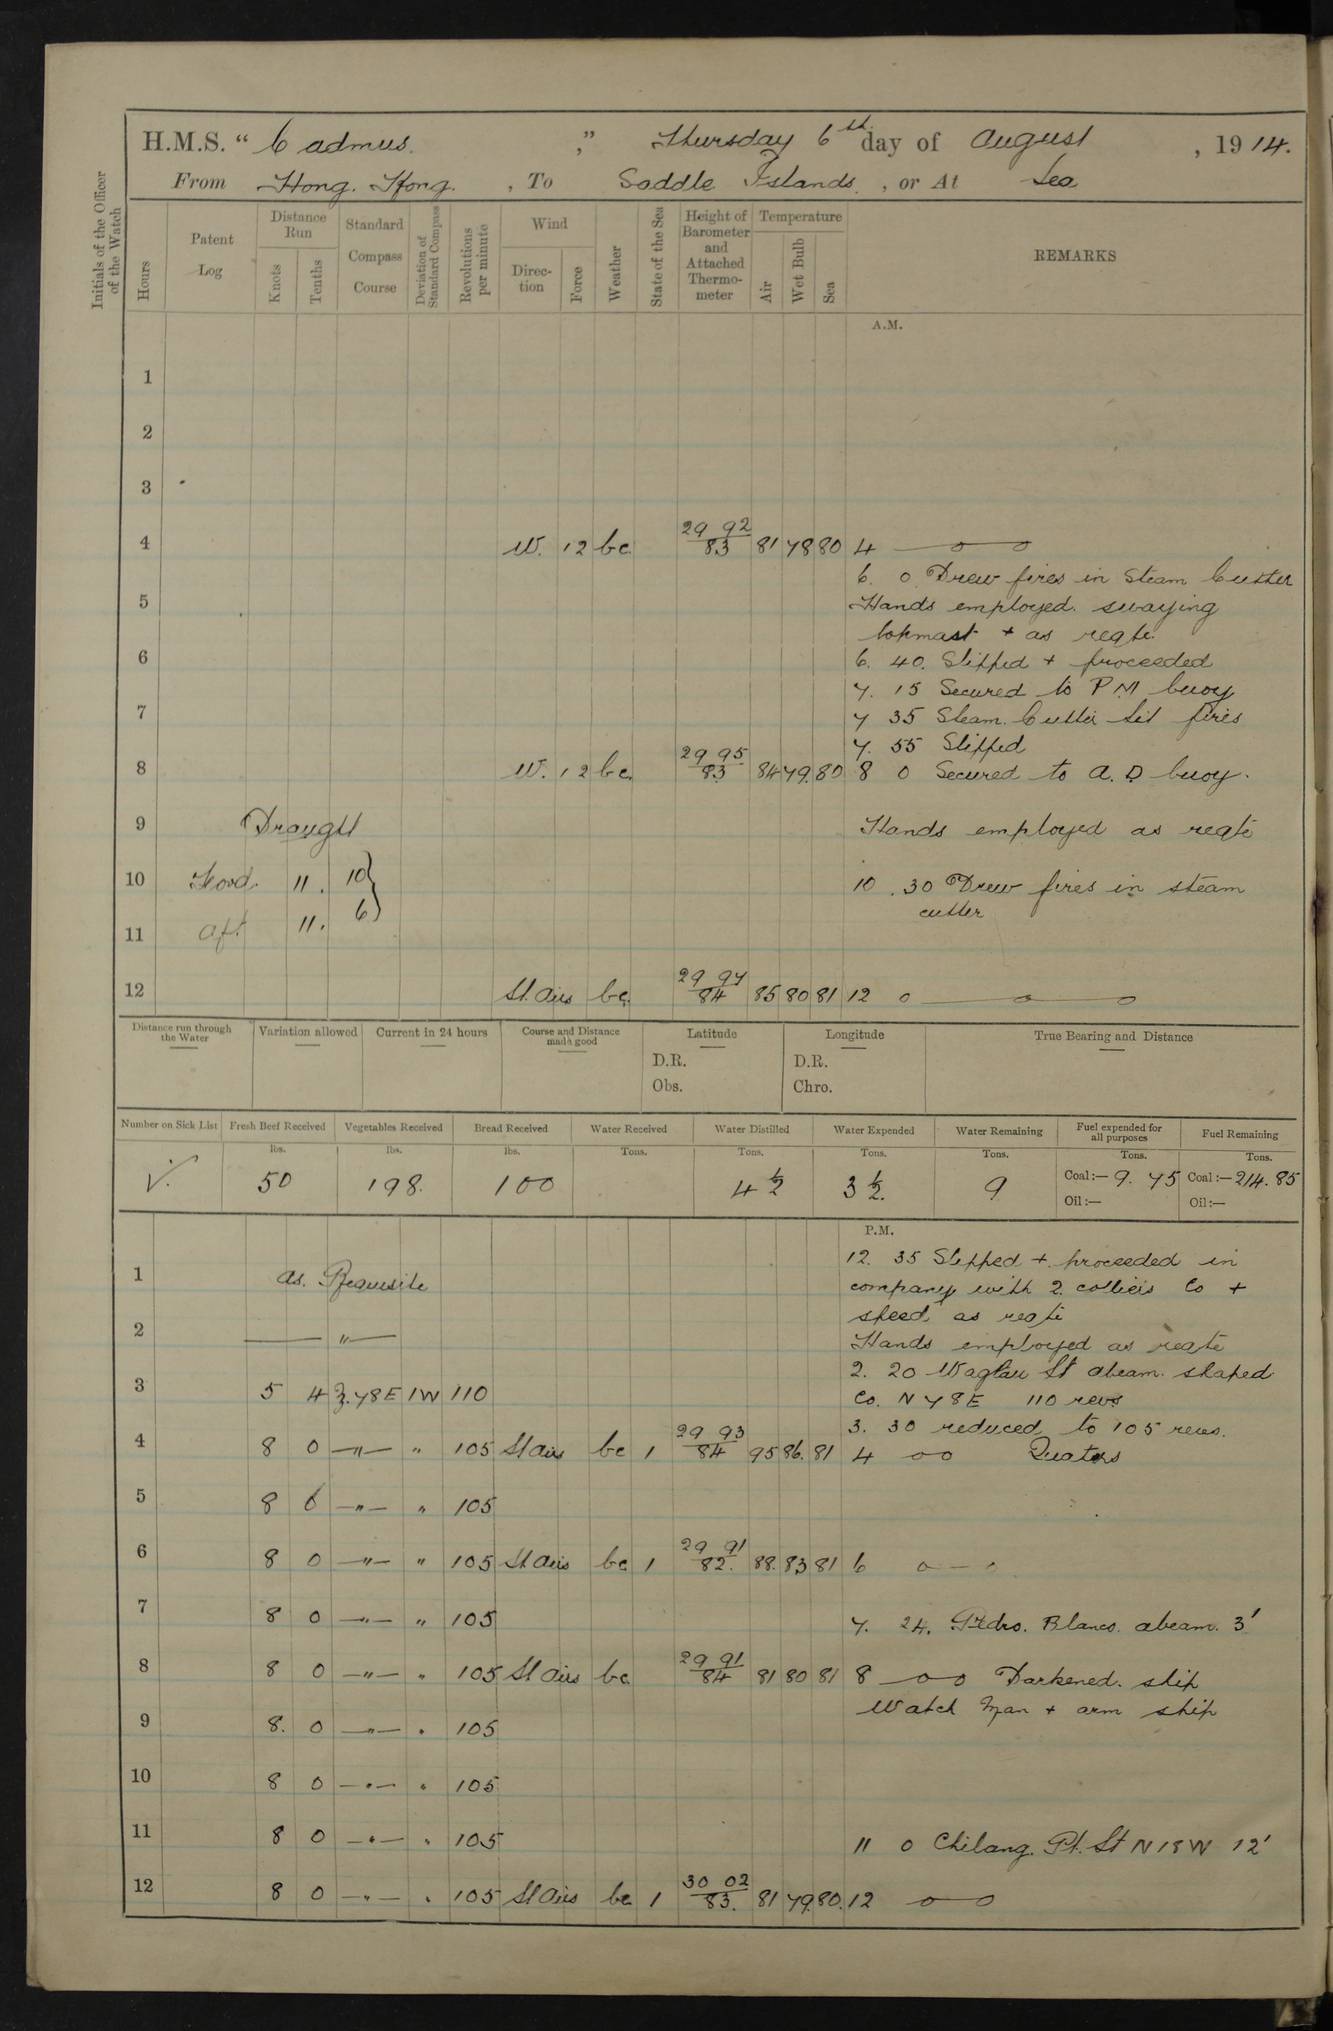 H.M.S. " Cadmus. ," Thursday 6th day of August , 1914.
From Hong. Kong. , To Saddle Islands. , or At Sea
Initials of the Officer of the Watch
Hours
Patent Log
Distance Run
Knots
Tenths
Standard Compass Course
Deviation of Standard Compass
Revolutions per minute
Wind
Direc-tion
Force
Weather
State of the Sea
Height of Barometer and Attached Thermo-meter
Temperature
Air
Wet Bulb
Sea
REMARKS
A.M.
1
2
3
4 W. 12 bc 29 92 83 81 78 80 4 —o—o
6. 0 Drew fires in Steam Cutter
5 Hands employed. swaying
topmast + as reqte.
6 6. 40. Slipped + proceeded
7. 15 Secured to P M buoy
7 7 35 Steam. Cutter lit fires
7. 55 Slipped
8 W. 12 bc. 29 95 83 84 79. 80 8 0 Secured to A. D buoy.
9 Draught Hands employed as reqte
10 Ford. 11. 10 10. 30 Drew fires in steam
cutter
11 aft 11. 6
12 St. airs bc. 29 94 84 85 80 81 12 o —o—o
Distance run through the Water
Variation allowed
Current in 24 hours
Course and Distance made good
Latitude
D.R.
Obs.
Longitude
D.R.
Chro.
True Bearing and Distance
Number on Sick List
Fresh Beef Received
Vegetables Received
Bread Received
Water Received
Water Distilled
Water Expended
Water Remaining
Fuel expended for all purposes
Fuel Remaining
lbs. lbs. lbs. Tons. Tons. Tons. Tons. Tons. Tons.
50 198. 100 4 1/2 3 1/2. 9 Coal:— 9. 75 Coal:— 214. 85
Oil:— Oil:—
P.M.
12. 35 Slipped + proceeded in
1 as. Requisite company with 2. colliers Co +
speed, as reqte
2 — " — Hands employed as reqte
2. 20 Waglan Lt abeam. shaped
3 5 4 N.78E 1W 110 Co. N 78E 110 revs
3. 30 reduced, to 105 revs.
4 8 0 —"— " 105 St airs bc 1 29 93 84 95 86. 81 4 oo Quaters
5 8 0 —"— " 105
6 8 0 —"— " 105 St airs bc 1 29 91 82. 88. 83 81 6 o — o
7 8 0 —"— " 105 7. 24. Pedro. Blanco. abeam. 3'
8 8 0 —"— " 105 St airs bc 29 91 84 81 80 81 8 —o o Darkened. ship
Watch Man + arm ship
9 8. 0 —"— " 105
10 8 0 —"— " 105
11 8 0 —"— " 105 11 0 Chilang. Pt. Lt N18W 12'
12 8 0 —"— " 105 St airs bc 1 30 02 83. 81 79. 80. 12 —o—o